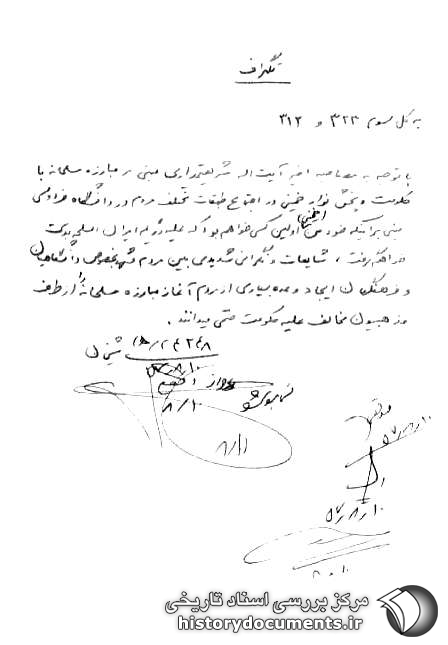 تلگراف
به کل سوم ۳۲۳ و ۳۱۲
با توجه به مصاحبه اخیر آیت اله شریعتمداری مبنی بر مبارزه مسلحانه با
حکومت و پخش نوار خمینی در اجتماع طبقات مختلف مردم در دانشگاه فردوسی
مبنی بر اینکه خود من (خمینی) اولین کسی خواهم بود که علیه رژیم ایران اسلحه بدست
خواهم گرفت ، شایعات و نگرانی شدیدی بین مردم مشهد بخصوص دانشگاهیان
و فرهنگیان ایجاد و عده بسیاری از مردم آغاز مبارزه مسلحانه را از طرف
مذهبیون مخالف علیه حکومت حتمی میدانند .
شیخان
۵۷/۸/۱۰
۸/۱۰
۸/۱۱
۵۷/۸/۱۰
۵۷/۸/۱۰
مرکز بررسی اسناد تاریخی
historydocuments.ir